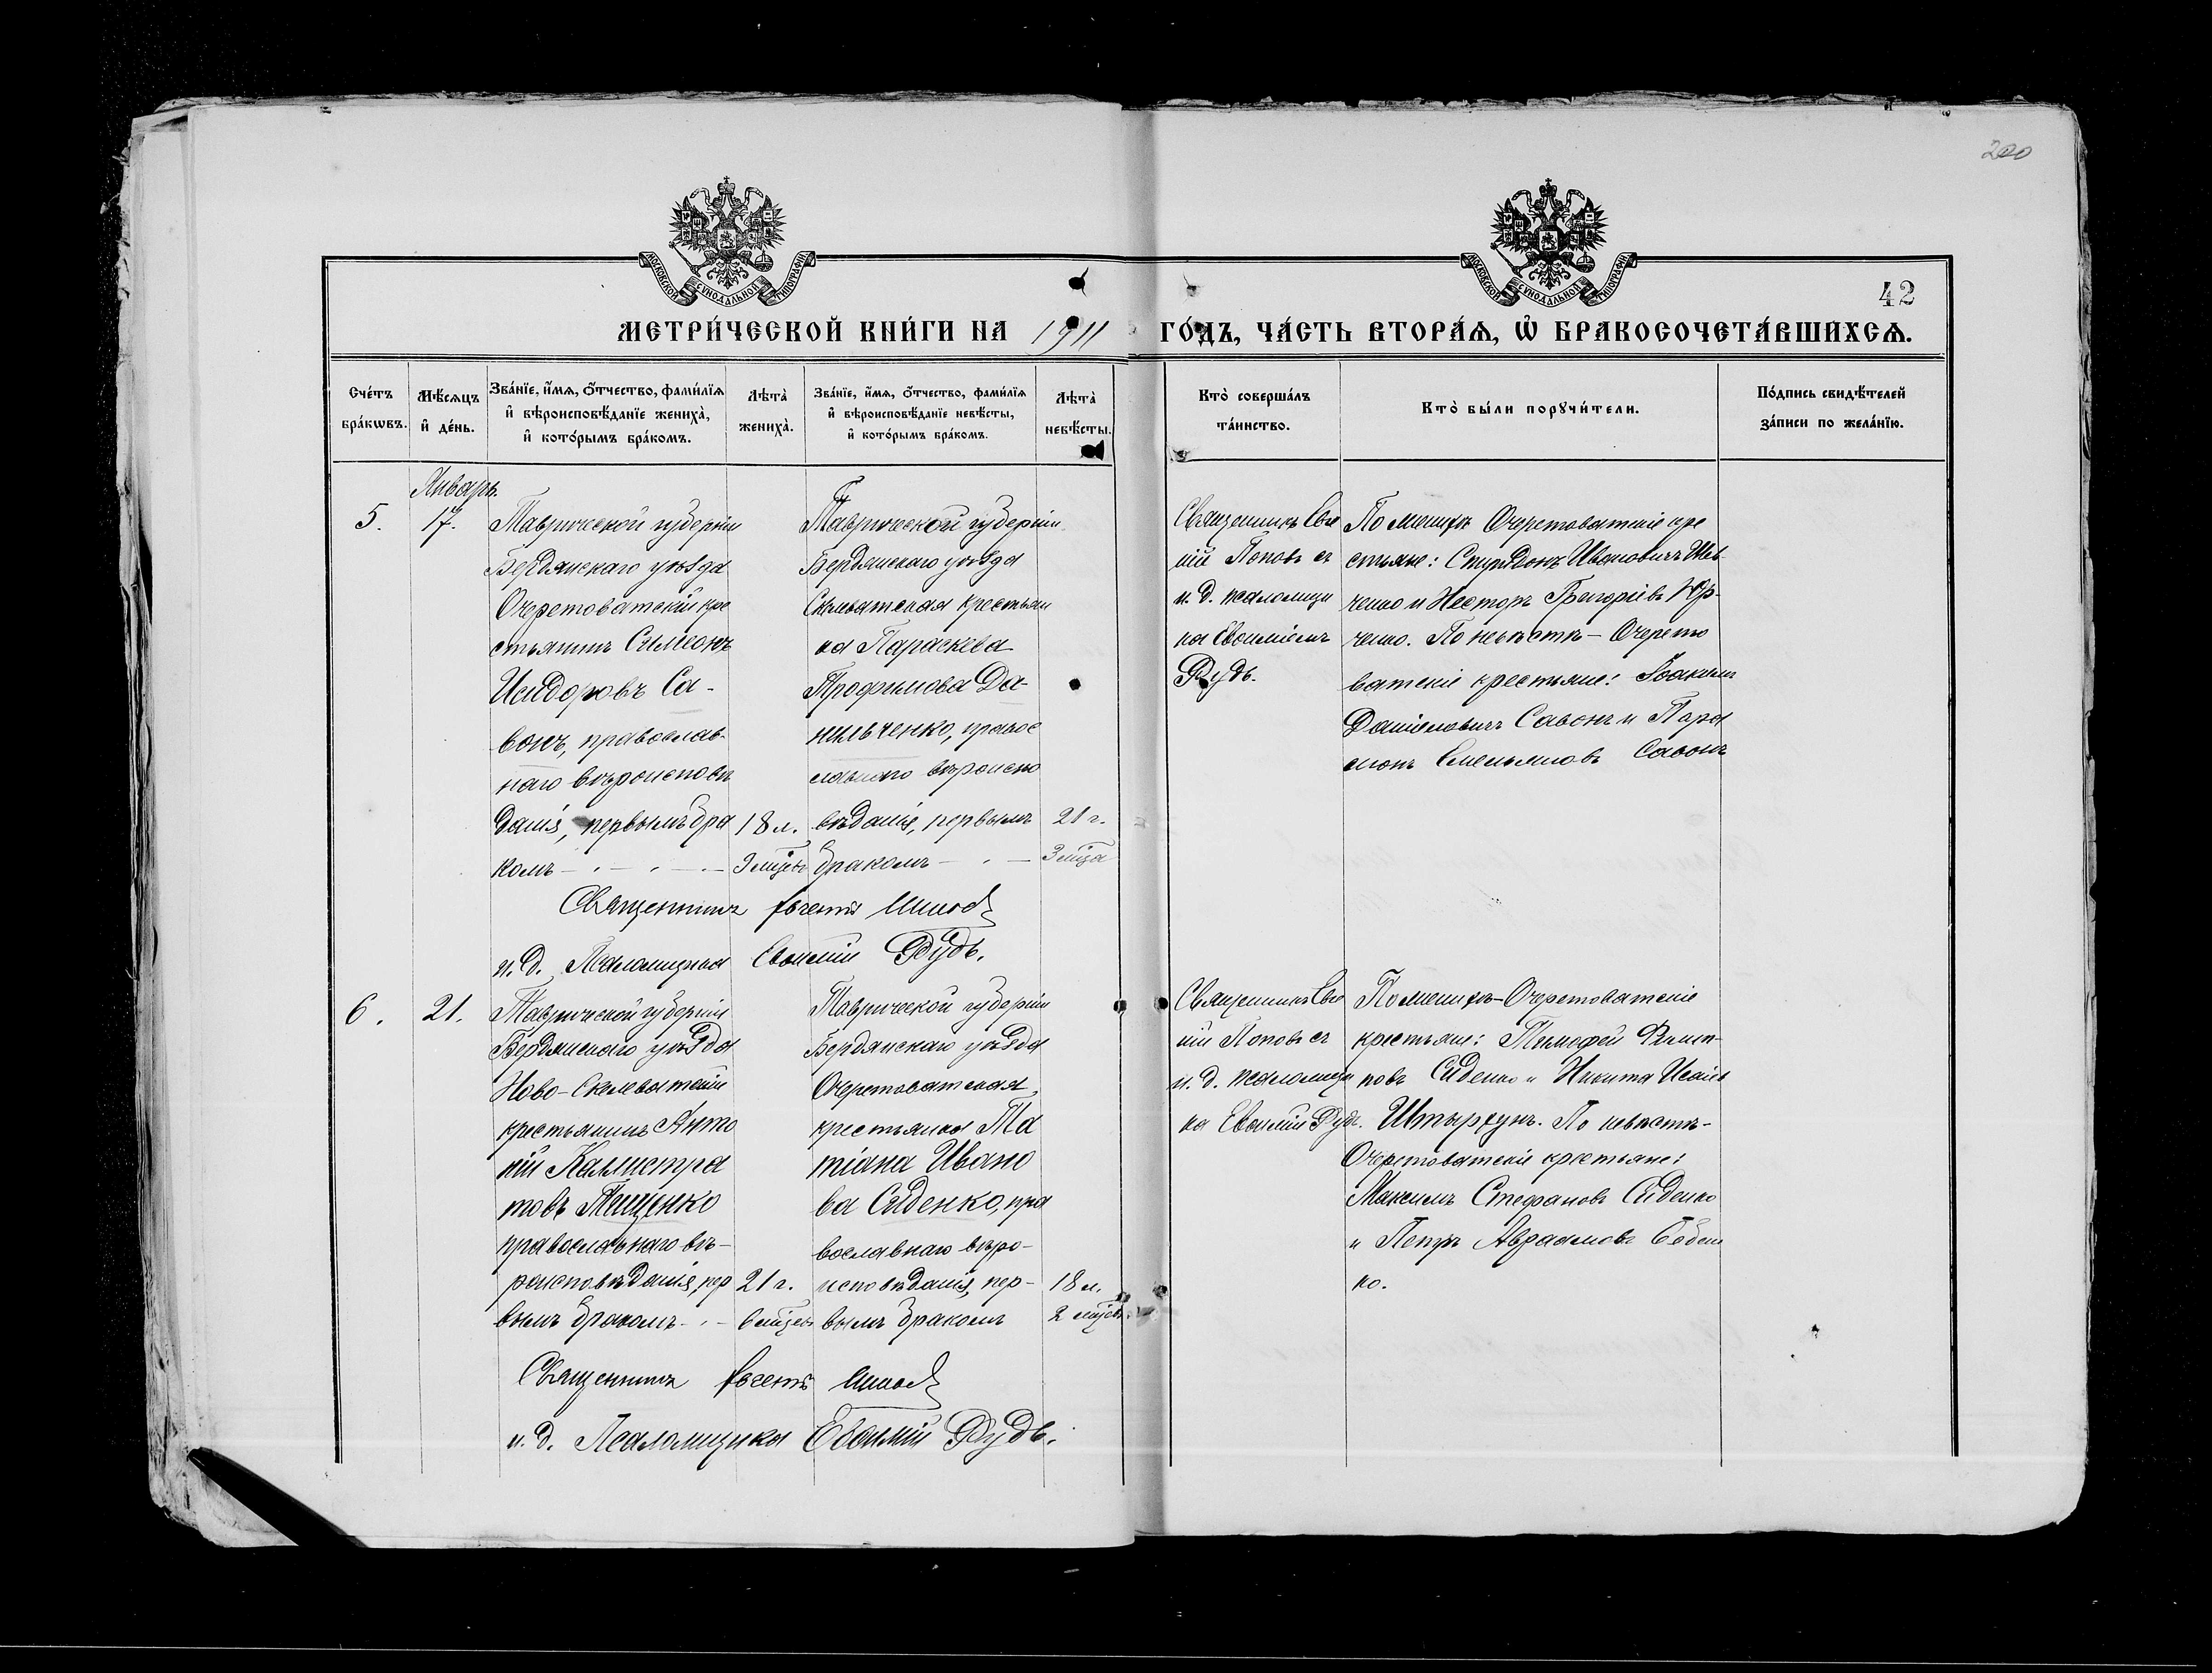 200
МОСКОВСКОЙ СѴНОДАЛЬНОЙ ТИПОГРАФІИ
МОСКОВСКОЙ СѴНОДАЛЬНОЙ ТИПОГРАФІИ
42
МЕТРИ́ЧЕСКОЙ КНИ́ГИ НА 1911 ГО́ДЪ, ЧА́СТЬ ВТОРА́Ѧ, Ѽ БРАКОСОЧЕТА́ВШИХСѦ.
Сче́тъ
бра́кѡвъ.
Мѣ́сѧцъ
и҆ де́нь.
Зва́нїе, и҆́мѧ, ѻ҆́тчество, фами́лїѧ
и҆ вѣроисповѣ́данїе жениха̀,
и҆ кото́рымъ бра́комъ.
Лѣта̀
жениха̀.
Зва́нїе, и҆́мѧ, ѻ҆́тчество, фами́лїѧ
и҆ вѣроисповѣ́данїе невѣ́сты,
и҆ кото́рымъ бра́комъ.
Лѣта̀
невѣ́сты.
Кто̀ соверша́лъ
та́инство.
Кто̀ бы́ли порꙋчи́тели.
По́дпись свидѣ́телей
за́писи по жела́нїю.
Январь.
5.
17.
Таврической губерніи
Бердянскаго уѣзда
Очеретоватскій кре
стьянинъ Симеонъ
Исидоровъ Са-
вонъ, православ-
наго вѣроисповѣ
данія, первымъ бра
комъ
18 л.
9 мцевъ
Таврической губерніи
Бердянскаго уѣзда
крестьян
ка Параскева
Трофимова Да-
нильченко, правос
лавнаго вѣроиспо
вѣданія, первымъ
бракомъ
21 г.
3 мца
Священникъ Евге
ній Поповъ съ
и. д. псаломщи
ка Евѳиміемъ
Рудь.
По женихѣ Очеретоватскіе кре
стьяне: Ивановичъ Шев-
ченко и Несторъ Григоріевъ Юр-
ченко. По невѣстѣ - Очерето
ватскіе крестьяне: Іоакимъ
Даніиловичъ Савонъ и Пара
монъ Емельяновъ Савонъ
Священникъ Евгеній Поповъ
и. д. Псаломщика Евѳимій Рудь.
6.
21.
Таврической губерніи
Бердянскаго уѣзда
Ново-Скелеватскій
крестьянинъ Анто
ній Каллистра
товъ Тищенко
православнаго вѣ-
роисповѣданія, пер
вымъ бракомъ
21 г.
6 мцевъ
Таврической губерніи
Бердянскаго уѣзда
Очеретоватская
крестьянка Та
тіана Ивано
ва Сиденко, пра
вославнаго вѣро-
исповѣданія, пер-
вымъ бракомъ
18 л.
2 мцевъ
Священникъ Евге
ній Поповъ съ
и. д. псаломщи
ка Евѳимій Рудь.
По женихѣ - Очеретоватскіе
крестьяне: Тимофей Филип-
повъ Сиденко и Никита Исаіев
Штыркунъ. По невѣстѣ -
Очеретоватскіе крестьяне:
Максимъ Стефановъ Сиденко
и Петръ Авраамовъ
ко.
Священникъ Евгеній Поповъ
и. д. Псаломщика Евѳимій Рудь.